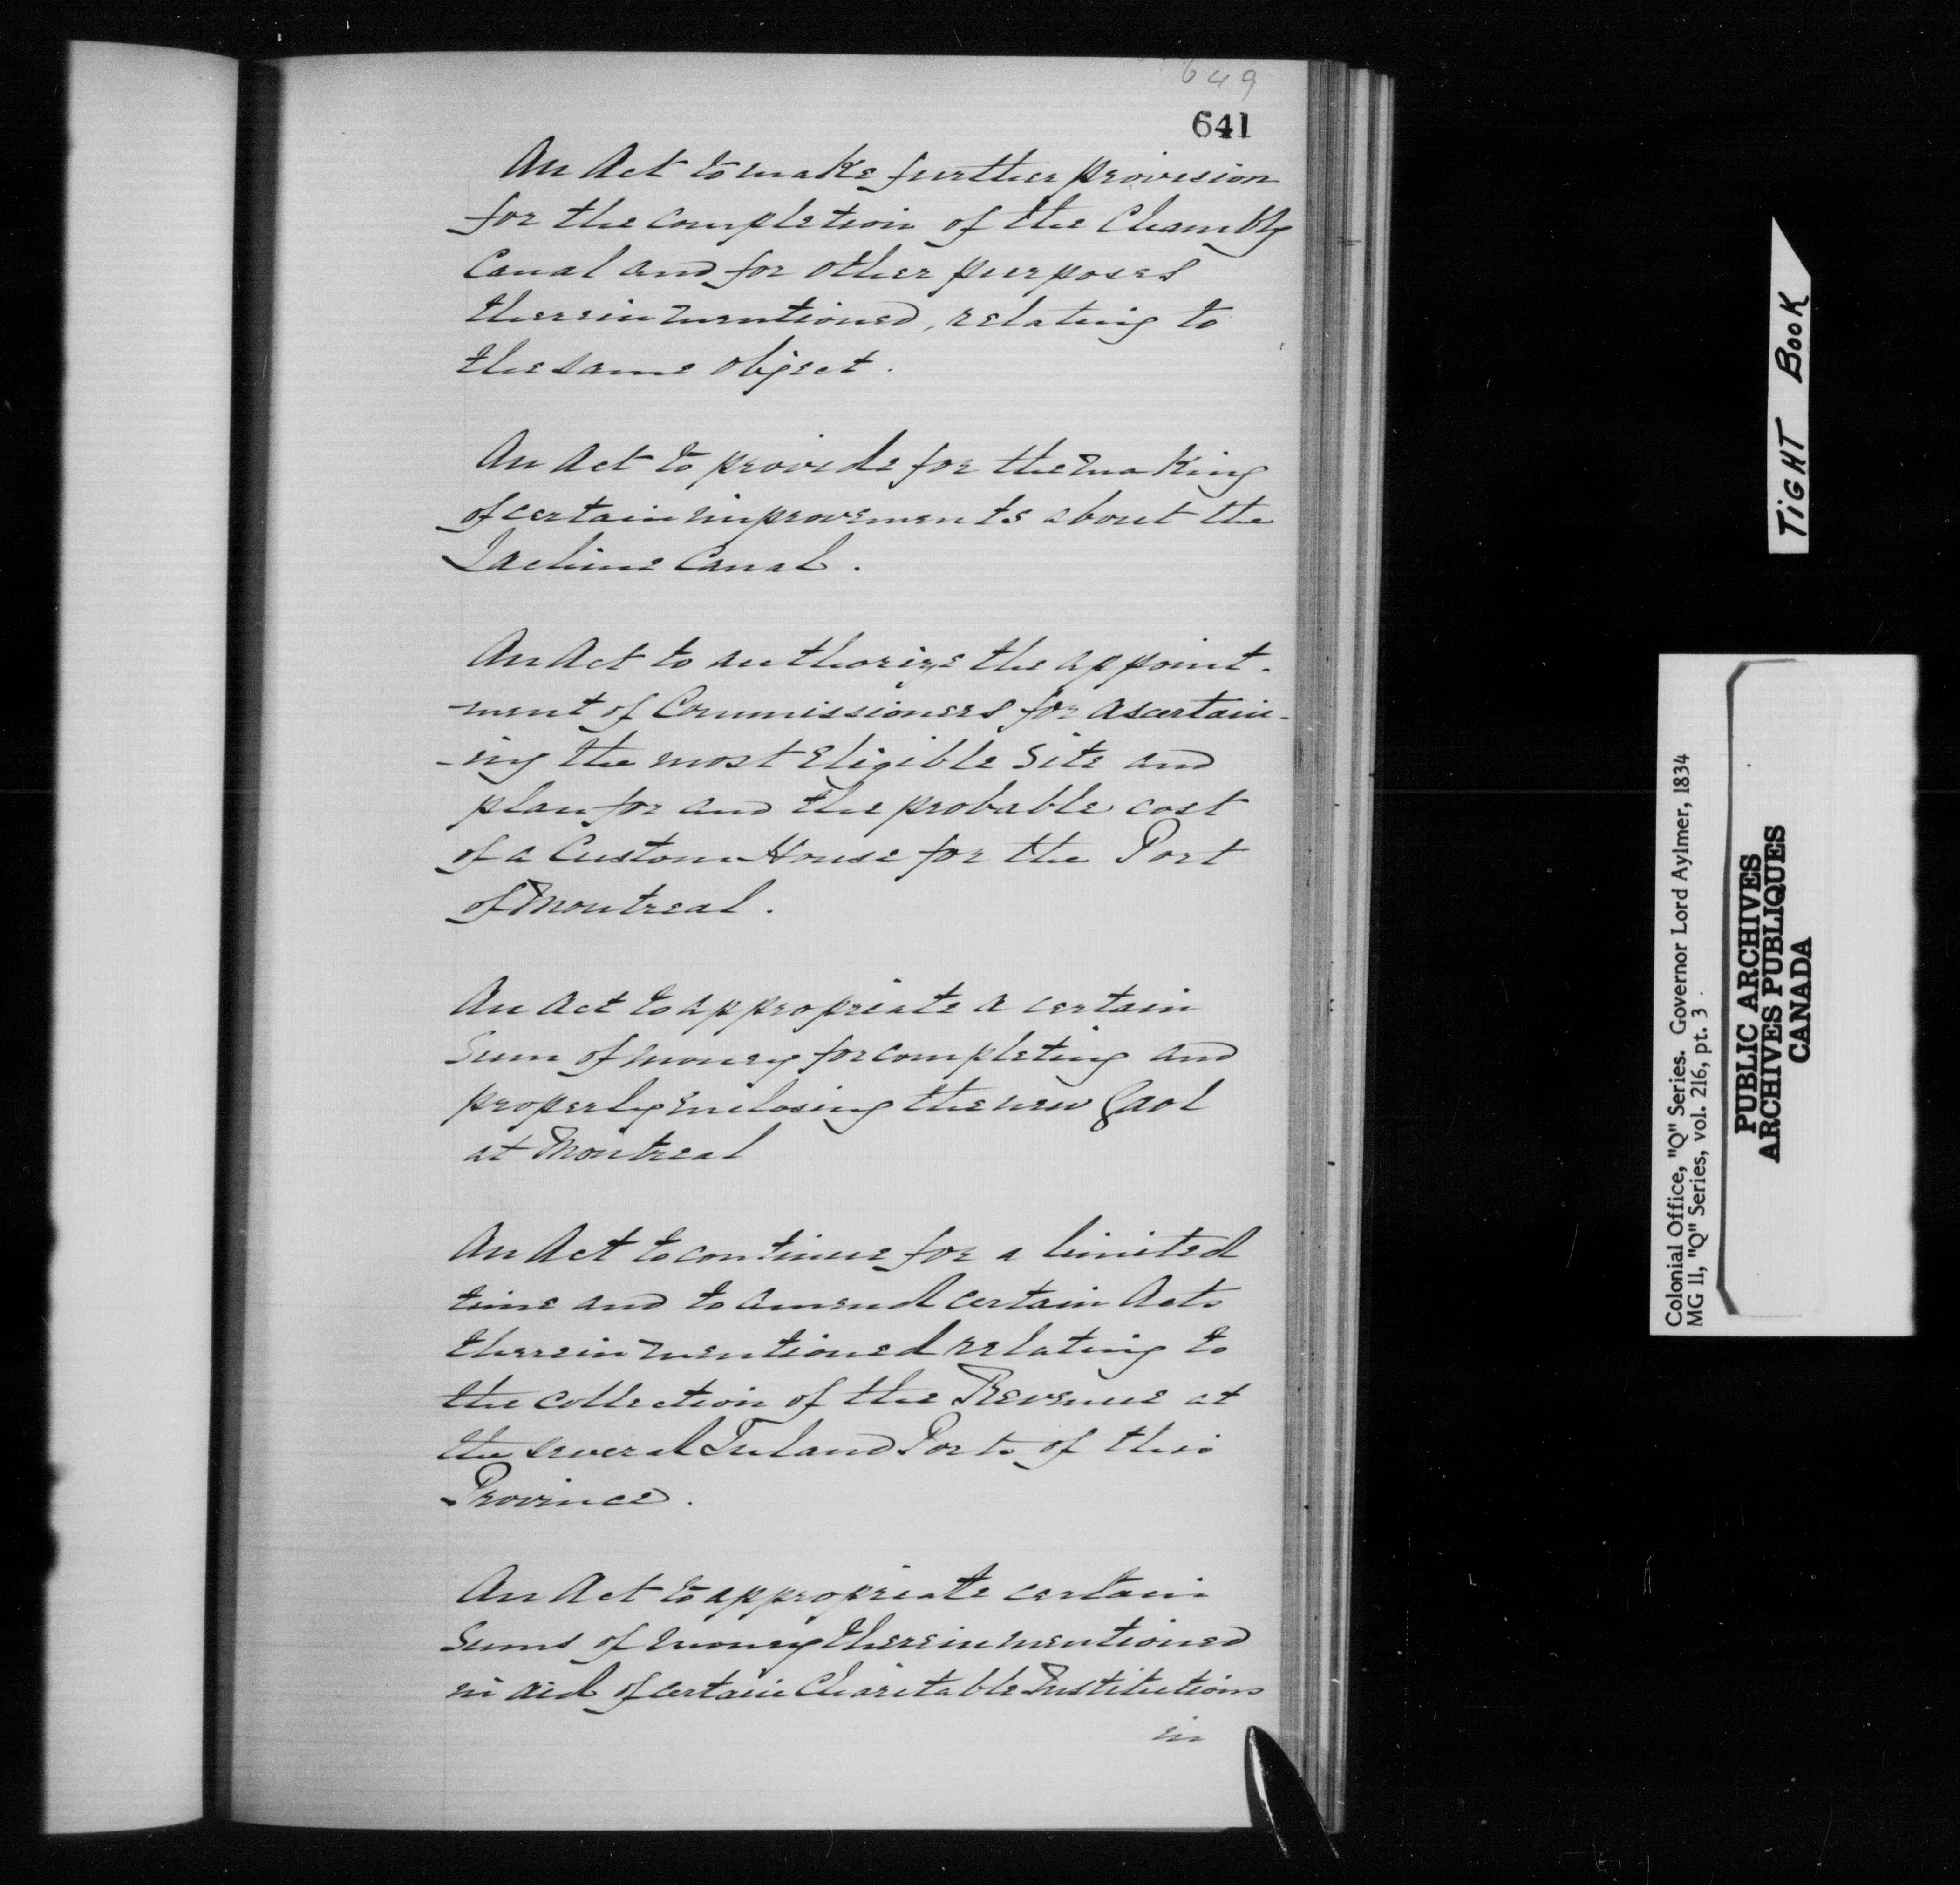 649
641
An Act to make further provision
for the completion of the Chambly
Canal and for other purposes
therein mentioned, relating to
the same object.
An Act to provide for the making
of certain improvements about the
Lachine Canal.
An Act to authorize the appoint-
-ment of Commissioners for ascertain-
-ing the most Eligible Site and
plan for and the probable cost
of a Custom House for the Port
of Montreal.
An Act to appropriate a certain
Sum of money for completing and
properly Enclosing the new Gaol
at Montreal
An Act to continue for a limited
time and to amend certain Acts
therein mentioned relating to
the collection of the Revenue at
the several Inland Ports of this
Province.
An Act to appropriate certain
Sums of money therein mentioned
in aid of certain Charitable Institutions
in
TIGHT BOOK
Colonial Office, "Q" Series. Governor Lord Aylmer, 1834
MG 11, "Q" Series, vol. 216, pt. 3
PUBLIC ARCHIVES
ARCHIVES PUBLIQUES
CANADA